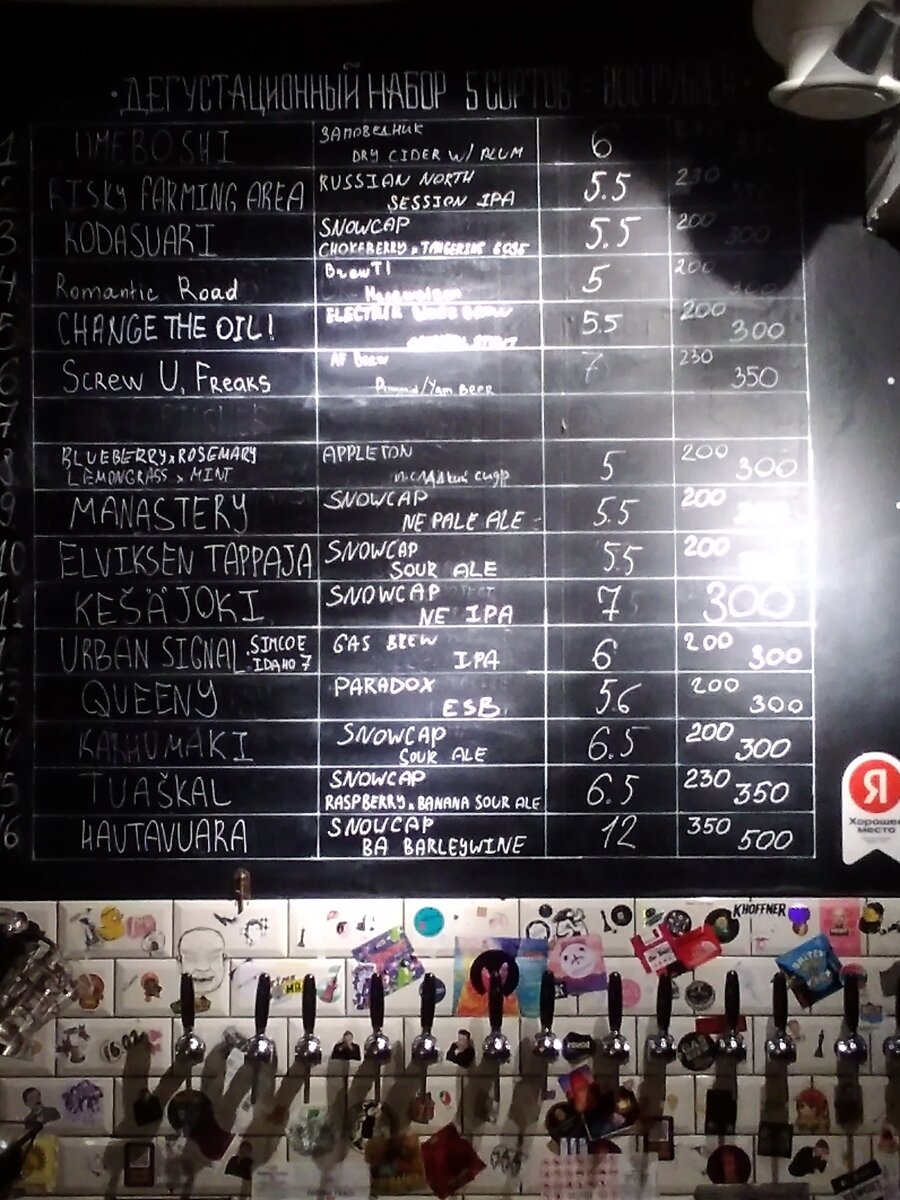 ДЕГУСТАЦИОННЫЙ НАБОР 5 СОРТОВ = 800 РУБЛЕЙ
1 UMEBOSHI ЗАПОВЕДНИК DRY CIDER W/ PLUM 6 230 350
2 RISKY FARMING AREA RUSSIAN NORTH SESSION IPA 5.5 230 350
3 KODASUARI SNOWCAP CHOKEBERRY x TANGERINE GOSE 5.5 200 300
4 Romantic Road BrewTI 5 200 300
5 CHANGE THE OIL! ELECTRIK 5.5 200 300
6 Screw U, Freaks AF Brew /Yam BEER 7 230 350
7
8 BLUEBERRY x ROSEMARY LEMONGRASS x MINT APPLETON П.СЛАДКИЙ СИДР 5 200 300
9 MANASTERY SNOWCAP NE PALE ALE 5.5 200
10 ELVIKSEN TAPPAJA SNOWCAP SOUR ALE 5.5 200
11 KEŠÄJOKI SNOWCAP NE IPA 7 300
URBAN SIGNAL. SIMCOE IDAHO 7 GAS BREW IPA 6 200 300
3 QUEENY PARADOX ESB 5.6 200 300
KARHUMAKI SNOWCAP SOUR ALE 6.5 200 300
5 TUAŠKAL SNOWCAP RASPBERRY x BANANA SOUR ALE 6.5 230 350
6 HAUTAVUARA SNOWCAP BA BARLEYWINE 12 350 500
Я
Хорошее
место
KHOFFNER